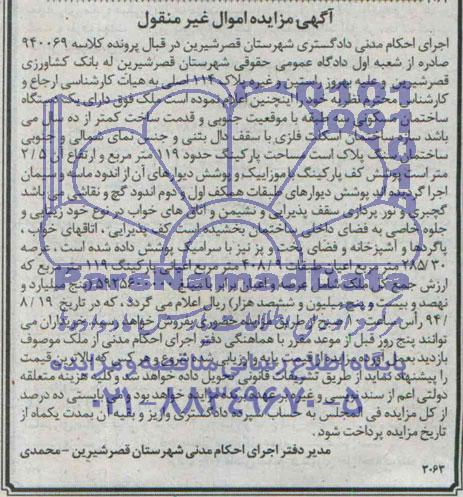 آگهی مزایده اموال غیر منقول
اجرای احکام مدنی دادگستری شهرستان قصرشیرین در قبال پرونده کلاسه ۹۴۰۰۶۹
صادره از شعبه اول دادگاه عمومی حقوقی شهرستان قصرشیرین له بانک کشاورزی
قصرشیرین و علیه بهروز راستین و غیره پلاک ۱۱۴ اصلی به هیات کارشناسی ارجاع و
کارشناس محترم نظریه خود را اینچنین اعلام نموده است ملک فوق دارای یک دستگاه
ساختمان مسکونی سه طبقه با موقعیت جنوبی و قدمت ساخت کمتر از ده سال می
باشد سازه ساختمان اسکلت فلزی با سقف دال بتنی و جنس نمای شمالی و جنوبی
ساختمان سنگ پلاک است مساحت پارکینگ حدود ۱۱۹ متر مربع و ارتفاع آن ۲/۵
متر است پوشش کف پارکینگ با موزاییک و پوشش دیوارهای آن از اندود ماسه و سیمان
اجرا گردیده اند پوشش دیوارهای طبقات همکف اول و دوم اندود گچ و نقاشی می باشد
گچبری و نور پردازی سقف پذیرایی و نشیمن و اتاق های خواب در نوع خود زیبایی و
جلوه خاصی به فضای داخلی ساختمان بخشیده است کف پذیرایی ، اتاقهای خواب ،
پاگردها و آشپزخانه و فضای پخت و پز نیز با سرامیک پوشش داده شده است . عرصه
۲۸۵/۳۰ متر مربع اعیان طبقات ۴۰۸/۹ متر مربع اعیان پارکینگ ۱۱۹ متر مربع که
ارزش جمع کل ملک شامل عرصه و اعیان برابر با مبلغ (پنج میلیارد و
نهصد و بیست و پنج میلیون و ششصد هزار) ریال اعلام می گردد ، که در تاریخ ۸/۱۹
/۹۴ رأس ساعت ۱۰ صبح از طریق مزایده حضوری بفروش خواهد رسید خریداران می
توانند پنج روز قبل از موعد مقرر با هماهنگی دفتر اجرای احکام مدنی از ملک موصوف
بازدید بعمل آورند مزایده از قیمت پایه و ارزیابی شده شروع و هر کس که بالاترین قیمت
را پیشنهاد نماید از طریق تشریفات قانونی تحویل داده خواهد شد و کلیه هزینه متعلقه
دولتی اعم از سند رسمی و غیره بر عهده برنده مزایده خواهد بود و می بایستی ده درصد
از کل مزایده فی المجلس به حساب سپرده دادگستری واریز و بقیه آن بمدت یکماه از
تاریخ مزایده پرداخت شود .
مدیر دفتر اجرای احکام مدنی شهرستان قصرشیرین - محمدی
۳۰۶۳
ParsNamadData
پایگاه اطلاع رسانی مناقصه و مزایده
۰۲۱-۸۸۳۴۹۶۷۰-۵